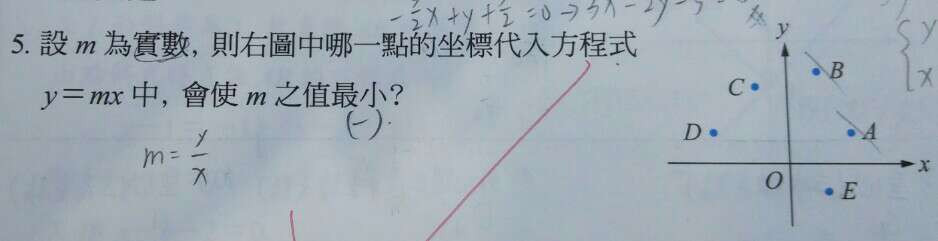 -3/2x+y+1/2=0→3x-2y-
5. 設 m 為實數, 則右圖中哪一點的坐標代入方程式
y=mx 中, 會使 m 之值最小?
(-)
m=y/x
y
B
C
D
A
x
O
E
y
x